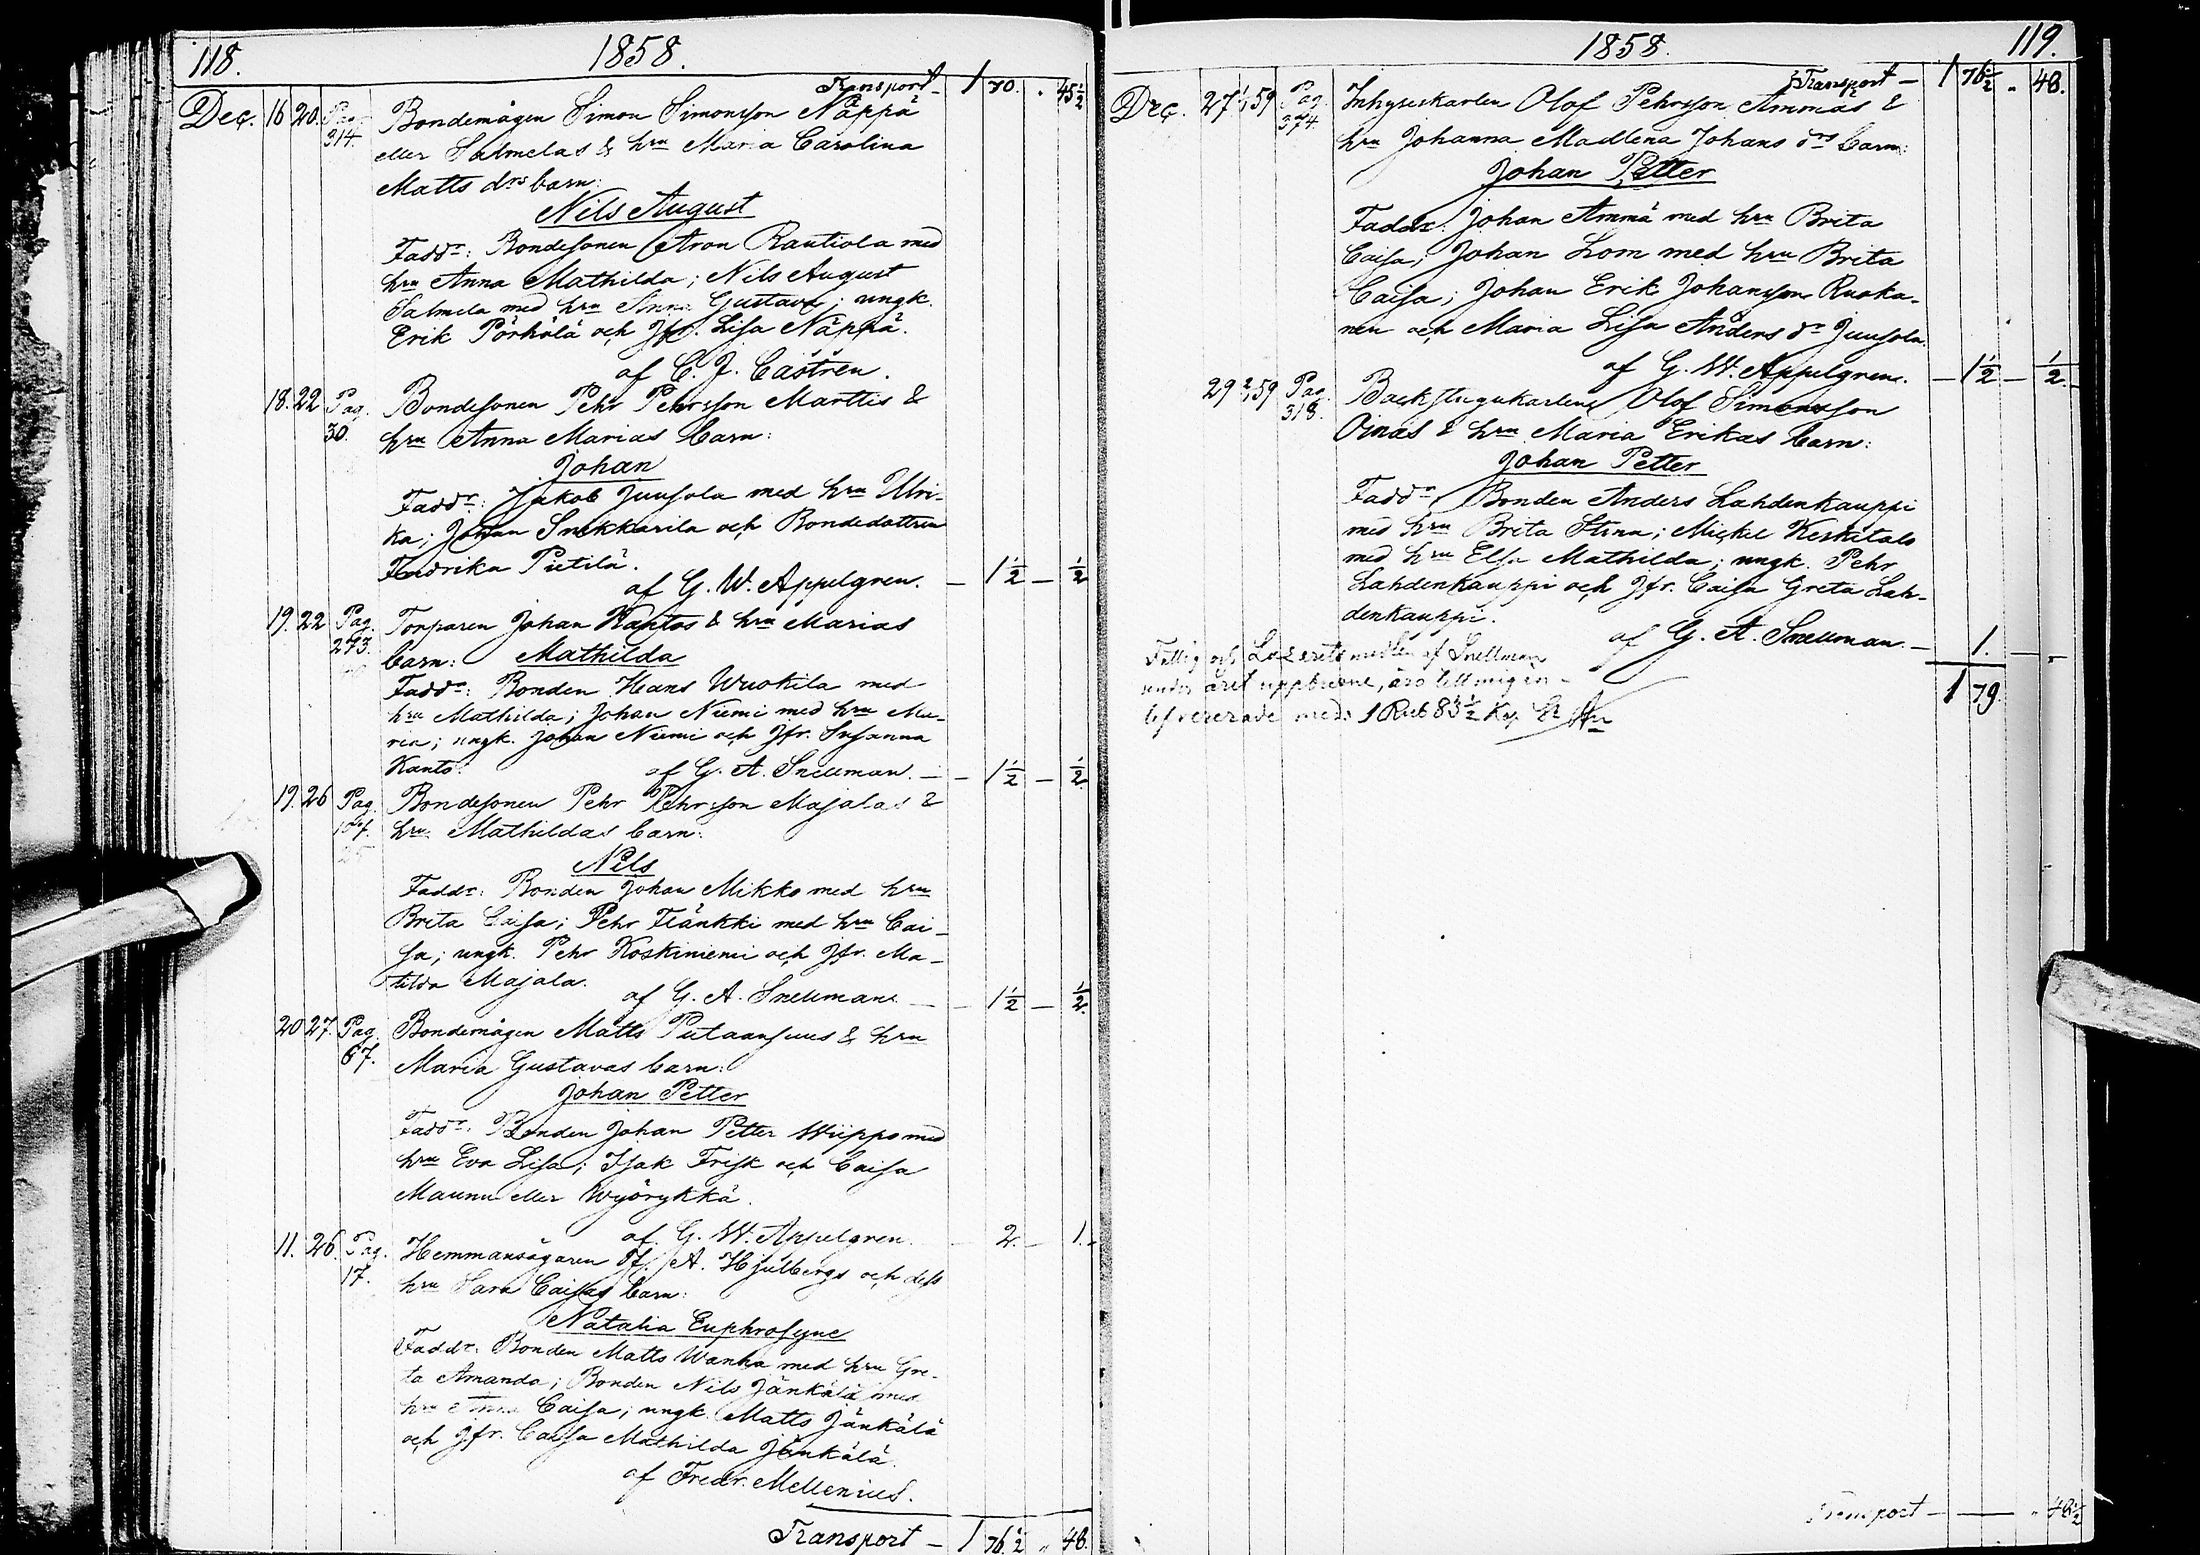 118. 1858.
Transport 1 70. " 45½
Dec. 16 20. Pag. 314. Bondemågen Simon Simonsson Näppä
eller Salmelas & hru Maria Carolina
Matts drs barn:
Nils August
Faddr: Bondesonen Aron Rautiola med
hru Anna Mathilda; Nils August
Salmela med hru Anna Gustava; ungk.
Erik Pörhölä och Jfr. Lisa Näppä.
af C. J. Castrén.
18. 22 Pag. 30. Bondesonen Pehr Pehrsson Marttis &
hru Anna Marias barn:
Johan
Faddr: Jakob Juusola med hru Ulri-
ka; Johan Snikkarila och Bondedottren
Fredrika Pietilä.
af G. W. Appelgren. — 1½ — ½
19. 22 Pag. 293. Torparen Johan Kantos & hru Marias
barn: Mathilda
Faddr: Bonden Hans Wuokila med
hru Mathilda; Johan Niemi med hru Ma-
ria; ungk. Johan Niemi och Jfr. Susanna
Kanto.
af G. A. Snellman. — 1½ — ½
19. 26 Pag. Bondesonen Pehr Pehrsson Majalas &
hru Mathildas barn:
Nils
Faddr: Bonden Johan Mikko med hru
Brita Caisa; Pehr Fränkki med hru Cai-
sa; ungk. Pehr Koskiniemi och Jfr. Ma-
tilda Majala.
af G. A. Snellman. — 1½ — ½
20 27. Pag. 67. Bondemågen Matts Putaansuus & hru
Maria Gustavas barn:
Johan Petter
Faddr: Bonden Johan Petter Wiippo med
hru Eva Lisa; Isak Frisk och Caisa
Maunu eller Wyörykkä.
af G. W. Appelgren. — 2. — 1.
11. 26. Pag. 17. Hemmansägaren J. A. Hjulbergs och dess
hru Sara Caisas barn:
Natalia Euphrosyne
Faddr: Bonden Matts Wanha med hru Gre-
ta Amanda; Bonden Nils Jänkälä med
hru Anna Caisa; ungk. Matts Jänkälä
och Jfr. Caisa Mathilda Jänkälä.
af Fredr. Mellenius.
Transport — 1 76½ " 48.
1858. 119.
Transport — 1 76½ " 48.
Dec. 27 1/1 59 Pag. 374. Inhyseskarlen Olof Pehrsson Ammäs &
hru Johanna Madlena Johans drs barn:
Johan Petter
Faddr: Johan Ammä med hru Brita
Caisa; Johan Lom med hru Brita
Caisa; Johan Erik Johansson Ruoka-
nen och Maria Lisa Anders dr Juusola.
af G. W. Appelgren. — 1½ — ½
29 2/1 59 Pag. 318. Backstugukarlens Olof Simonsson
Oinas & hru Maria Erikas barn:
Johan Petter
Faddr: Bonden Anders Lahdenkauppi
med hru Brita Stina; Mickel Keskitalo
med hru Elsa Mathilda; ungk. Pehr
Lahdenkauppi och Jfr. Caisa Greta Lah-
denkauppi.
af G. A. Snellman. — 1. —
1 79.
Fattig och Lazaretts medlen af Snellman
under året uppburne, äro till mig in-
lefvererade med 1 Rub 83½ Kop.
Transport — " 48½